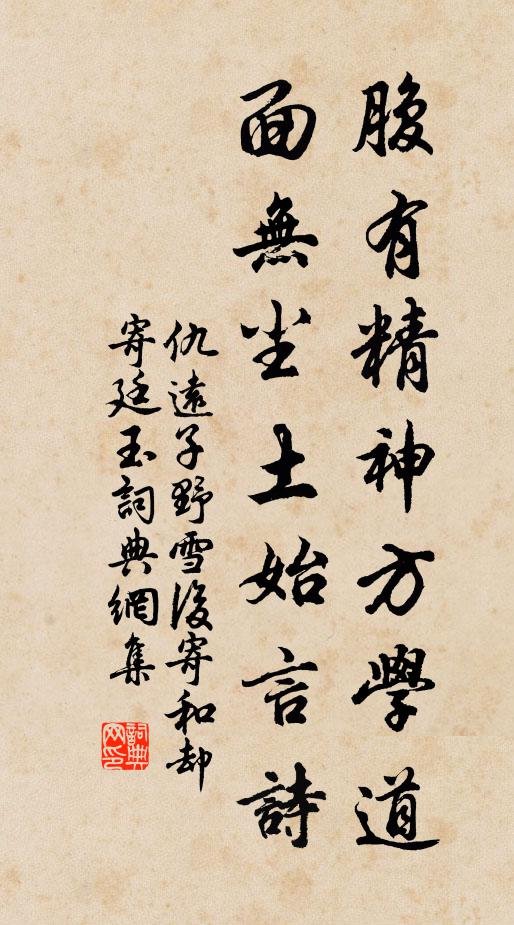 腹有精神方學道
面無尘土始言詩
仇遠子野雪後寄和却
寄廷玉詞典網集
詞典
网印